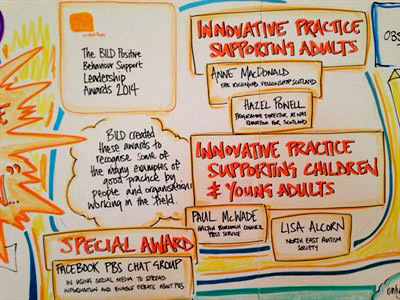 The BILD Positive
Behaviour Support
Leadership
Awards 2014
BILD created
these awards to
recognise some of
the many examples of
good practice by
people and organisations
working in the field.
SPECIAL AWARD
FACEBOOK PBS CHAT GROUP
IN USING SOCIAL MEDIA TO SPREAD
INFORMATION AND ENABLE DEBATE ABOUT PBS
INNOVATIVE PRACTICE
SUPPORTING ADULTS
ANNE MACDONALD
THE RICHMOND FELLOWSHIP SCOTLAND
HAZEL POWELL
PROGRAMME DIRECTOR AT NHS
EDUCATION FOR SCOTLAND
INNOVATIVE PRACTICE
SUPPORTING CHILDREN
& YOUNG ADULTS
PAUL McWADE
HALTON BOROUGH COUNCIL
PBSS SERVICE
LISA ALCORN
NORTH EAST AUTISM
SOCIETY
OBS